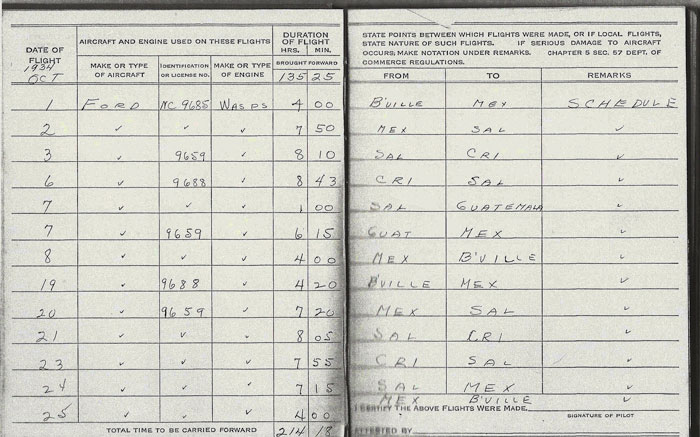 DATE OF FLIGHT AIRCRAFT AND ENGINE USED ON THESE FLIGHTS DURATION OF FLIGHT
MAKE OR TYPE OF AIRCRAFT IDENTIFICATION OR LICENSE NO. MAKE OR TYPE OF ENGINE HRS. MIN.
1934 OCT BROUGHT FORWARD 135 25
1 FORD NC 9685 WASPS 4 00
2 ✓ ✓ ✓ 7 50
3 ✓ 9659 ✓ 8 10
6 ✓ 9688 ✓ 8 43
7 ✓ ✓ ✓ 1 00
7 ✓ 9659 ✓ 6 15
8 ✓ ✓ ✓ 4 00
19 ✓ 9688 ✓ 4 20
20 ✓ 9659 ✓ 7 20
21 ✓ ✓ ✓ 8 05
23 ✓ ✓ ✓ 7 55
24 ✓ ✓ ✓ 7 15
25 ✓ ✓ ✓ 4 00
TOTAL TIME TO BE CARRIED FORWARD 214 18
STATE POINTS BETWEEN WHICH FLIGHTS WERE MADE, OR IF LOCAL FLIGHTS,
STATE NATURE OF SUCH FLIGHTS. IF SERIOUS DAMAGE TO AIRCRAFT
OCCURS, MAKE NOTATION UNDER REMARKS. CHAPTER 5 SEC. 57 DEPT. OF
COMMERCE REGULATIONS.
FROM TO REMARKS
B'VILLE MEX SCHEDULE
MEX SAL ✓
SAL CRI ✓
CRI SAL ✓
SAL GUATEMALA ✓
GUAT MEX ✓
MEX B'VILLE ✓
B'VILLE MEX ✓
MEX SAL ✓
SAL CRI ✓
CRI SAL ✓
SAL MEX ✓
MEX B'VILLE ✓
I CERTIFY THE ABOVE FLIGHTS WERE MADE.
SIGNATURE OF PILOT
ATTESTED BY